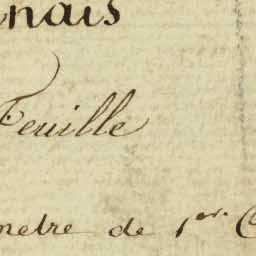 nais
Feuille
metre de 1er. C